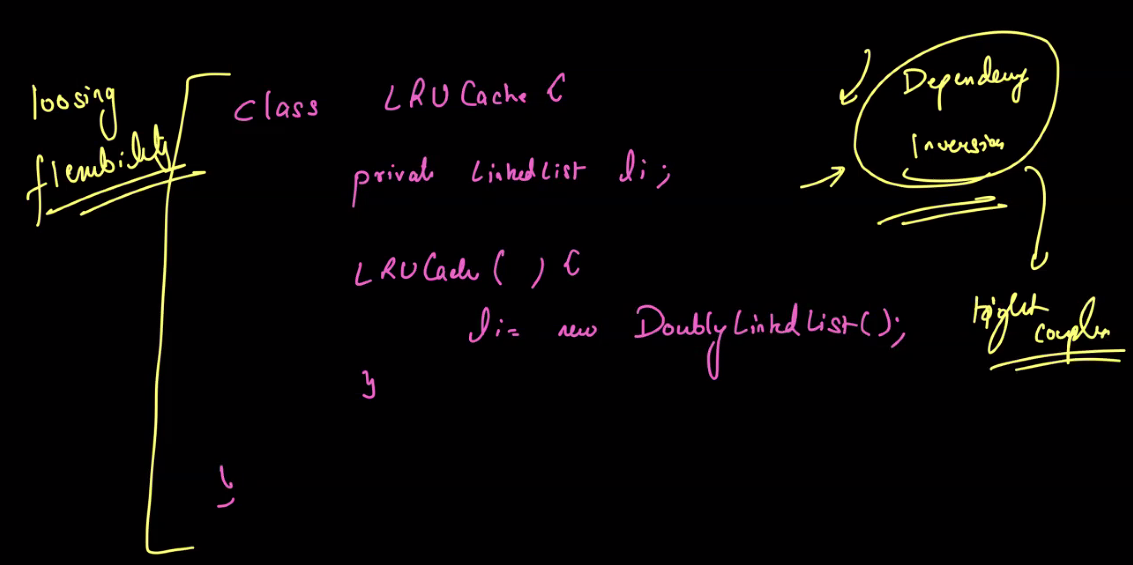 loosing
flexibility
class LRUCache {
private LinkedList li;
LRUCache( ) {
li= new DoublyLinkedList();
}
}
Dependency
Inversion
tight